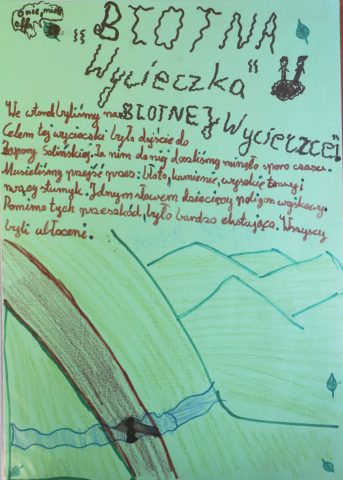 "BŁOTNA
Wycieczka"
We wtorek byliśmy na "BŁOTNEJ Wycieczce".
Celem tej wycieczki było dojście do
Zapory Solińskiej. Za nim do niej doszliśmy minęło sporo czasu.
Musieliśmy przejść przez: błoto, kamienie, wysokie trawy i
rwący stumyk. Jednym słowem dziecięcy poligon wojskowy.
Pomimo tych przeszkód, było bardzo ekscytująco. Wszyscy
byli ubłoceni.